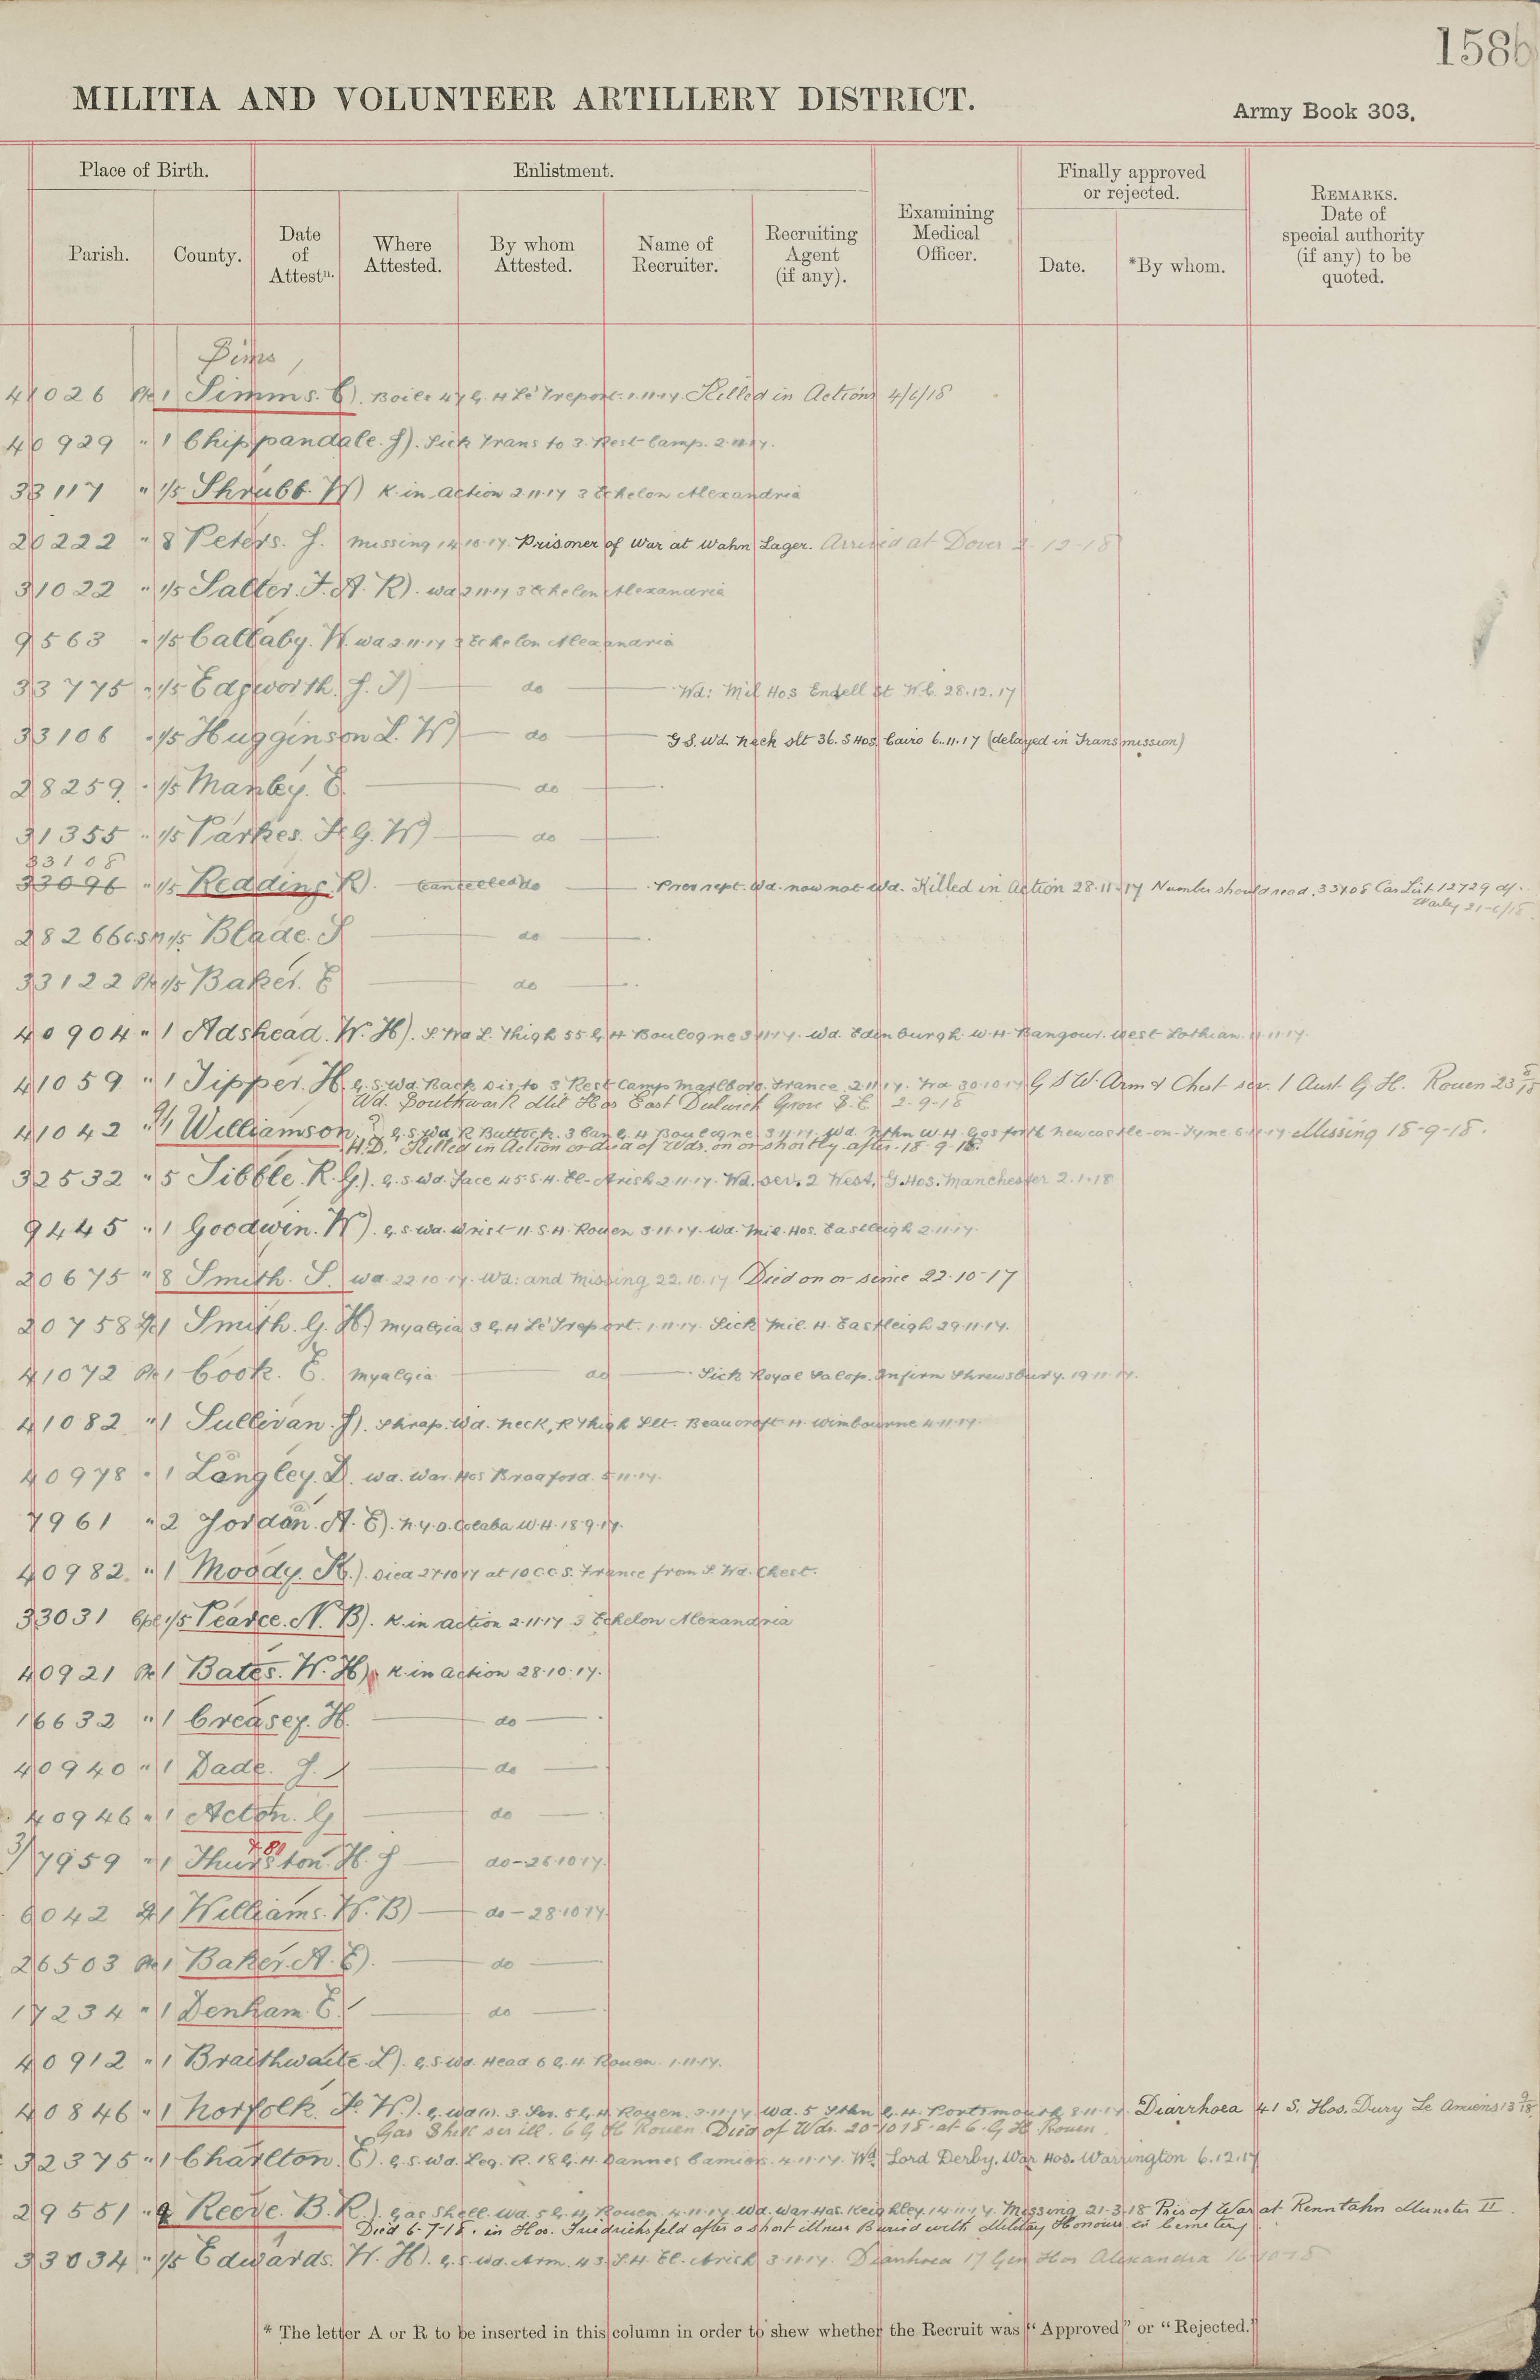 158
MILITIA AND VOLUNTEER ARTILLERY DISTRICT.
Army Book 303.
Place of Birth.
Enlistment.
Finally approved or rejected.
REMARKS. Date of special authority (if any) to be quoted.
Parish.
County.
Date of Attestn.
Where Attested.
By whom Attested.
Name of Recruiter.
Recruiting Agent (if any).
Examining Medical Officer.
Date.
*By whom.
41026 Pte 1 Simms. C). Boils 47 G. H Le Treport. 1.11.17. Killed in Action 4/6/18
40929 " 1 Chippandale. J). Sick Trans to 3. Rest Camp. 2.11.17.
33117 " 1/5 Shrubb. W) K. in action 2.11.17 3 Echelon Alexandria
20222 " 8 Peters. J. Missing 14.10.17. Prisoner of War at Wahn Lager. Arrived at Dover 2-12-18
31022 " 1/5 Salter. F. A. R). wd 2.11.17 3 Echelon Alexandria
9563 " 1/5 Callaby. W. wd 2.11.17 3 Echelon Alexandria
33775 " 1/5 Edgworth. J. J) do Wd: Mil Hos Endell St W.C. 28.12.17
33106 " 1/5 Hugginson L. W) do G.S. Wd. Neck slt 36. S Hos. Cairo 6.11.17 (delayed in Transmission)
28259 " 1/5 Manley. E. do
31355 " 1/5 Parkes. H. G. W) do
33108
33096 " 1/5 Redding. R). cancelled do Prev rept. Wd. now not Wd. Killed in Action 28.11.17 Number should read 33108 Cas List 12729 df.
Warley 21-6/18
28266 CSM 1/5 Blade. S do
33122 Pte 1/5 Baker. E do
40904 " 1 Adshead. W. H). S. Wd L. Thigh 55 G. H Boulogne 3.11.17. Wd. Edinburgh. W. H. Bangour. West Lothian. 11.11.17.
41059 " 1 Tipper. H. G.S. Wd. Back Dis to 3 Rest Camp Marlboro. France 2.11.17. Wd 30.10.17 G S W. Arm & Chest sev. 1 Aust. G. H. Rouen 23 8/18
Wd. Southwark Mil Hos East Dulwich Grove S.E. 2-9-18
41042 " 1 Williamson. J G.S. Wd R Buttock. 3 Can G. H Boulogne 3.11.17. Wd. Nthn W. H. Gosforth Newcastle-on-Tyne 6.11.17 Missing 18-9-18.
H.D. Killed in Action or died of Wds. on or shortly after. 18.9.18.
32532 " 5 Sibble. R. G). G.S. Wd. Face 45. S. H. El-Arish 2.11.17. Wd. sev. 2 West. G. Hos. Manchester 2.1.18
9445 " 1 Goodwin. W). G.S. Wd. Wrist 11 S. H. Rouen 3.11.17. Wd. Mil. Hos. Eastleigh 2.11.17.
20675 " 8 Smith. S. Wd 22.10.17. Wd: and Missing 22.10.17 Died on or since 22-10-17
20758 1 Smith. G. H) Myalgia 3 G. H Le Treport. 1.11.17. Sick Mil. H. Eastleigh 29.11.17.
41072 Pte 1 Cook. E. Myalgia do Sick Royal Salop. Infirm Shrewsbury. 19.11.17.
41082 " 1 Sullivan. J). Shrap. Wd. Neck, R Thigh Slt. Beaucroft H. Wimbourne 4.11.17.
40978 " 1 Langley. D. wd. War. Hos Bradford. 5.11.17.
7961 " 2 Jordan. A. E). N.Y.D. Colaba W.H. 18.9.17.
40982 " 1 Moody. H.). Died 27.10.17 at 10 C.C.S. France from S Wd. Chest.
33031 Cpl 1/5 Pearce. N. B). K. in action 2.11.17 3 Echelon Alexandria
40921 Pte 1 Bates. W. H). K. in action 28.10.17.
16632 " 1 Creasey. H. do
40940 " 1 Dade. J. do
40946 " 1 Acton. G do
3/7959 " 1 Thurston. H. J do-26.10.17.
6042 1 Williams. W. B) do-28.10.17.
26503 Pte 1 Baker. A. E). do
17234 " 1 Denham. E. do
40912 " 1 Braithwaite. L). G.S. Wd. Head 6 G. H. Rouen. 1.11.17.
40846 " 1 Norfolk. F. W.). 5 G. H. Rouen. 3.11.17 Wd. 5 Sthn G. H. Portsmouth 8.11.17. Diarrhoea 41 S. Hos. Dury Le Amiens 13 9/18
Gas Shell sev ill. 6 G H Rouen. Died of Wds. 20-10 18. at 6. G H. Rouen.
32375 " 1 Charlton. E). G.S. Wd. Leg. R. 18 G. H. Dannes Camiers. 4.11.17. Wd Lord Derby. War Hos. Warrington 6.12.17
29551 " 9 Reeve. B. R.). Gas Shell Wd. 5 G. H. Rouen. 4.11.17. Wd. War Hos. Keighley. 14.11.17. Missing 21-3-18 Pris of War at Renntahn Munster II
Died 6-7-18. in Hos. Friedrichsfeld after a short illness Buried with Military Honours in Cemetery
33034 " 1/5 Edwards. W. H). G.S. Wd. Arm. 43. S. H. El-Arish 3.11.17. Diarrhoea 17 Gen Hos Alexandria 16.10.18
* The letter A or R to be inserted in this column in order to shew whether the Recruit was "Approved" or "Rejected."